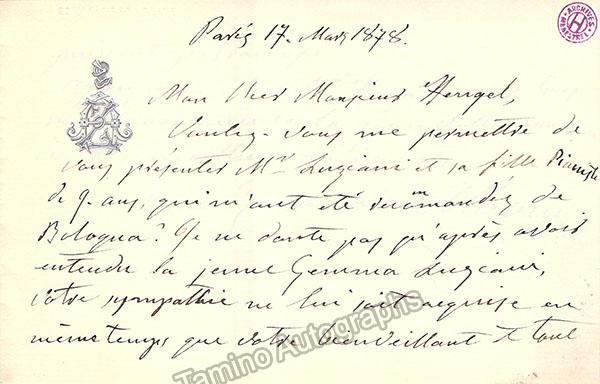 Paris 17. Mars 1878.
ARCHIVES HEUGEL
Mon cher Monsieur Heugel,
Voulez-vous me permettre de
vous présenter Mr Luziani et sa fille Pianiste
de 9. ans, qui m'ont été recommandés de
Bologna? Je ne doute pas qu'après avoir
entendu la jeune Gemma Luziani,
votre sympathie ne lui soit acquise en
même temps que votre bienveillant & tout
Tamino Autographs